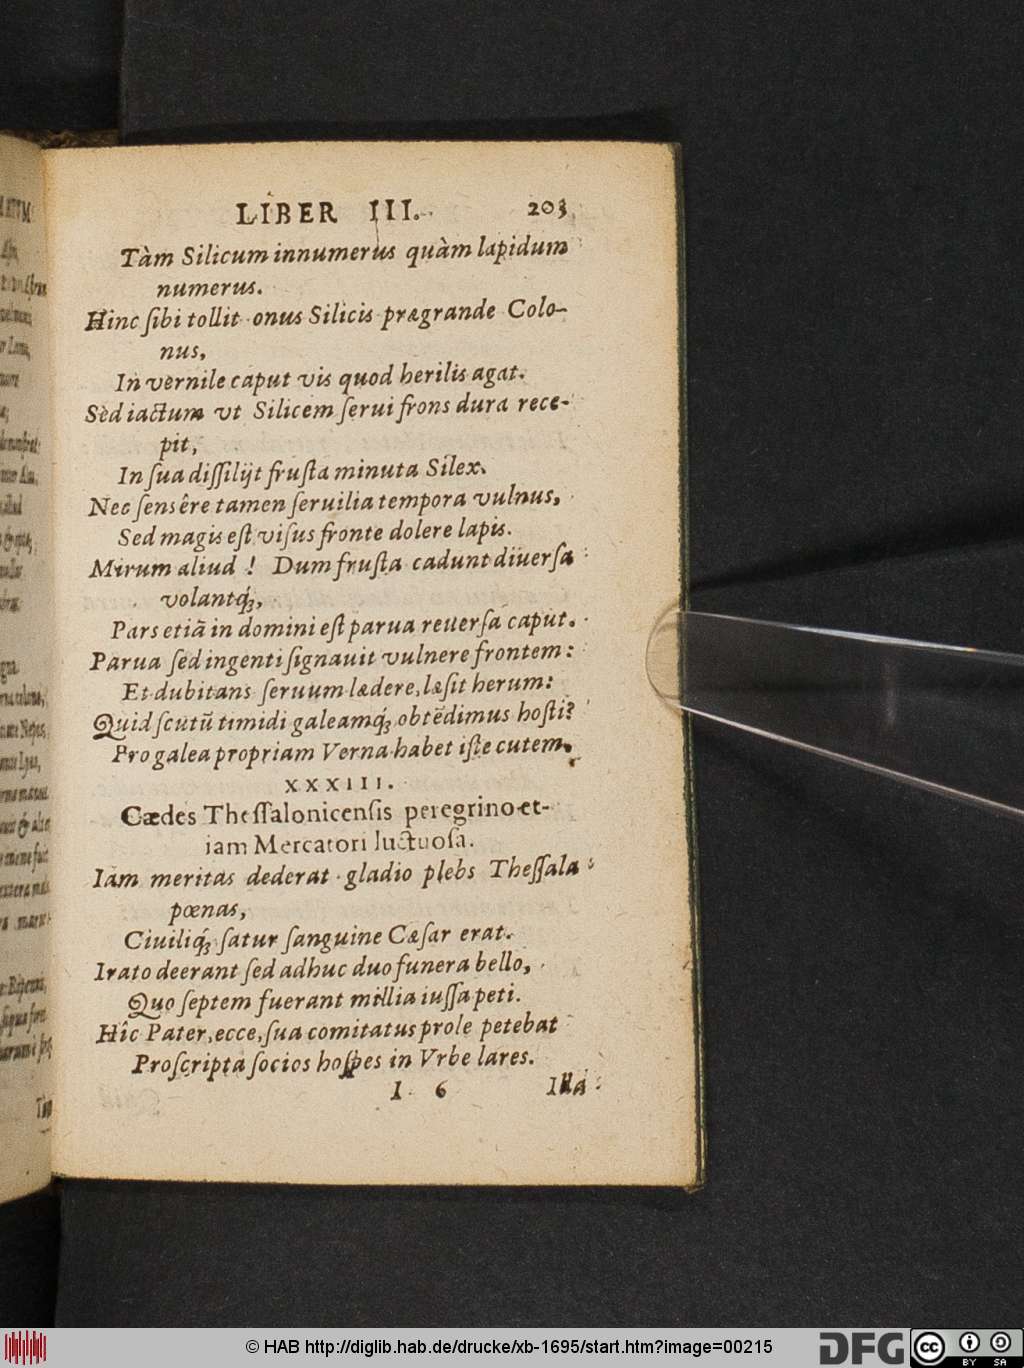 LIBER III. 203
Tàm Silicum innumerus quàm lapidum
numerus.
Hinc ſibi tollit onus Silicis prægrande Colo-
nus,
In vernile caput vis quod herilis agat.
Sèd iactum vt Silicem ſerui frons dura rece-
pit,
In ſua diſſilijt fruſta minuta Silex.
Nec ſensêre tamen ſeruilia tempora vulnus,
Sed magis eſt viſus fronte dolere lapis.
Mirum aliud ! Dum fruſta cadunt diuerſa
volantq́ꝫ,
Pars etiã in domini eſt parua reuerſa caput.
Parua ſed ingenti ſignauit vulnere frontem:
Et dubitans ſeruum lædere, læſit herum:
Quid ſcutũ timidi galeamq́ꝫ obtẽdimus hoſti?
Pro galea propriam Verna habet iſte cutem.
XXXIII.
Cædes Theſſalonicenſis peregrino et-
iam Mercatori luctuoſa.
Iàm meritas dederat gladio plebs Theſſala
pœnas,
Ciuiliq́ꝫ ſatur ſanguine Cæſar erat.
Irato deerant ſed adhuc duo funera bello,
Quo ſeptem fuerant millia iuſſa peti.
Hîc Pater, ecce, ſua comitatus prole petebat
Proſcripta ſocios hoſpes in Vrbe lares.
I 6 Illa
© HAB http://diglib.hab.de/drucke/xb-1695/start.htm?image=00215
DFG
cc
BY SA